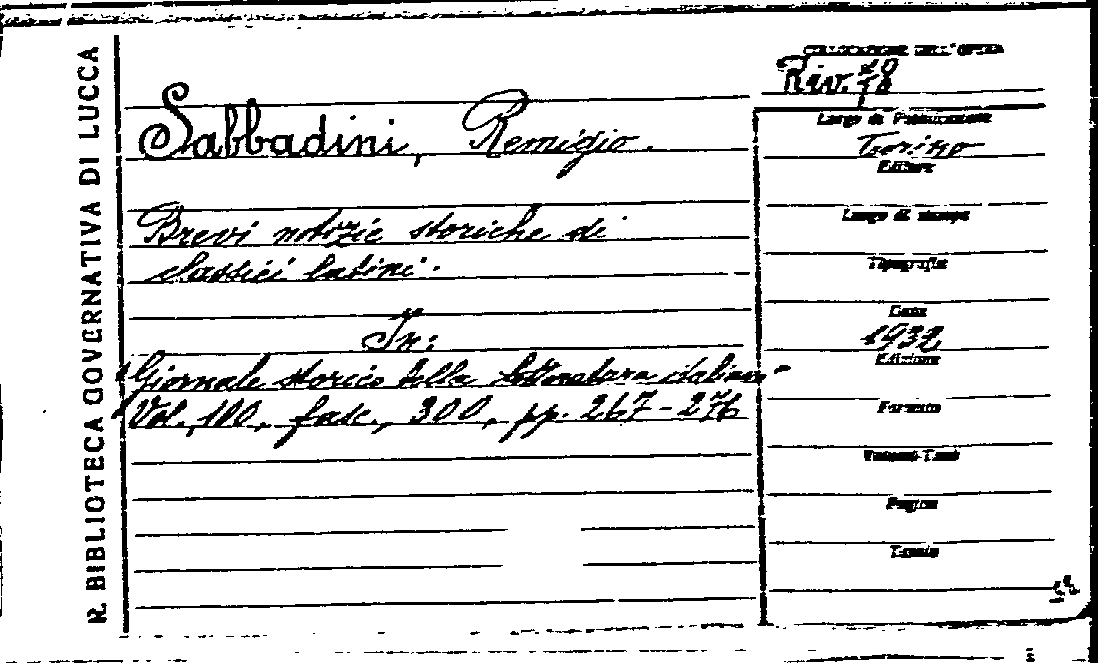 R. BIBLIOTECA GOVERNATIVA DI LUCCA
COLLOCAZIONE DELL'OPERA
Riv. 78
Sabbadini, Remigio.
Brevi notizie storiche di
classici latini.
In:
"Giornale storico della letteratura italiana"
Vol. 100, fasc., 300, pp. 267-276
Luogo di Pubblicazione
Torino
Editore
Luogo di stampa
Tipografia
Data
1932
Edizione
Formato
Volumi-Tomi
Pagine
Tavole